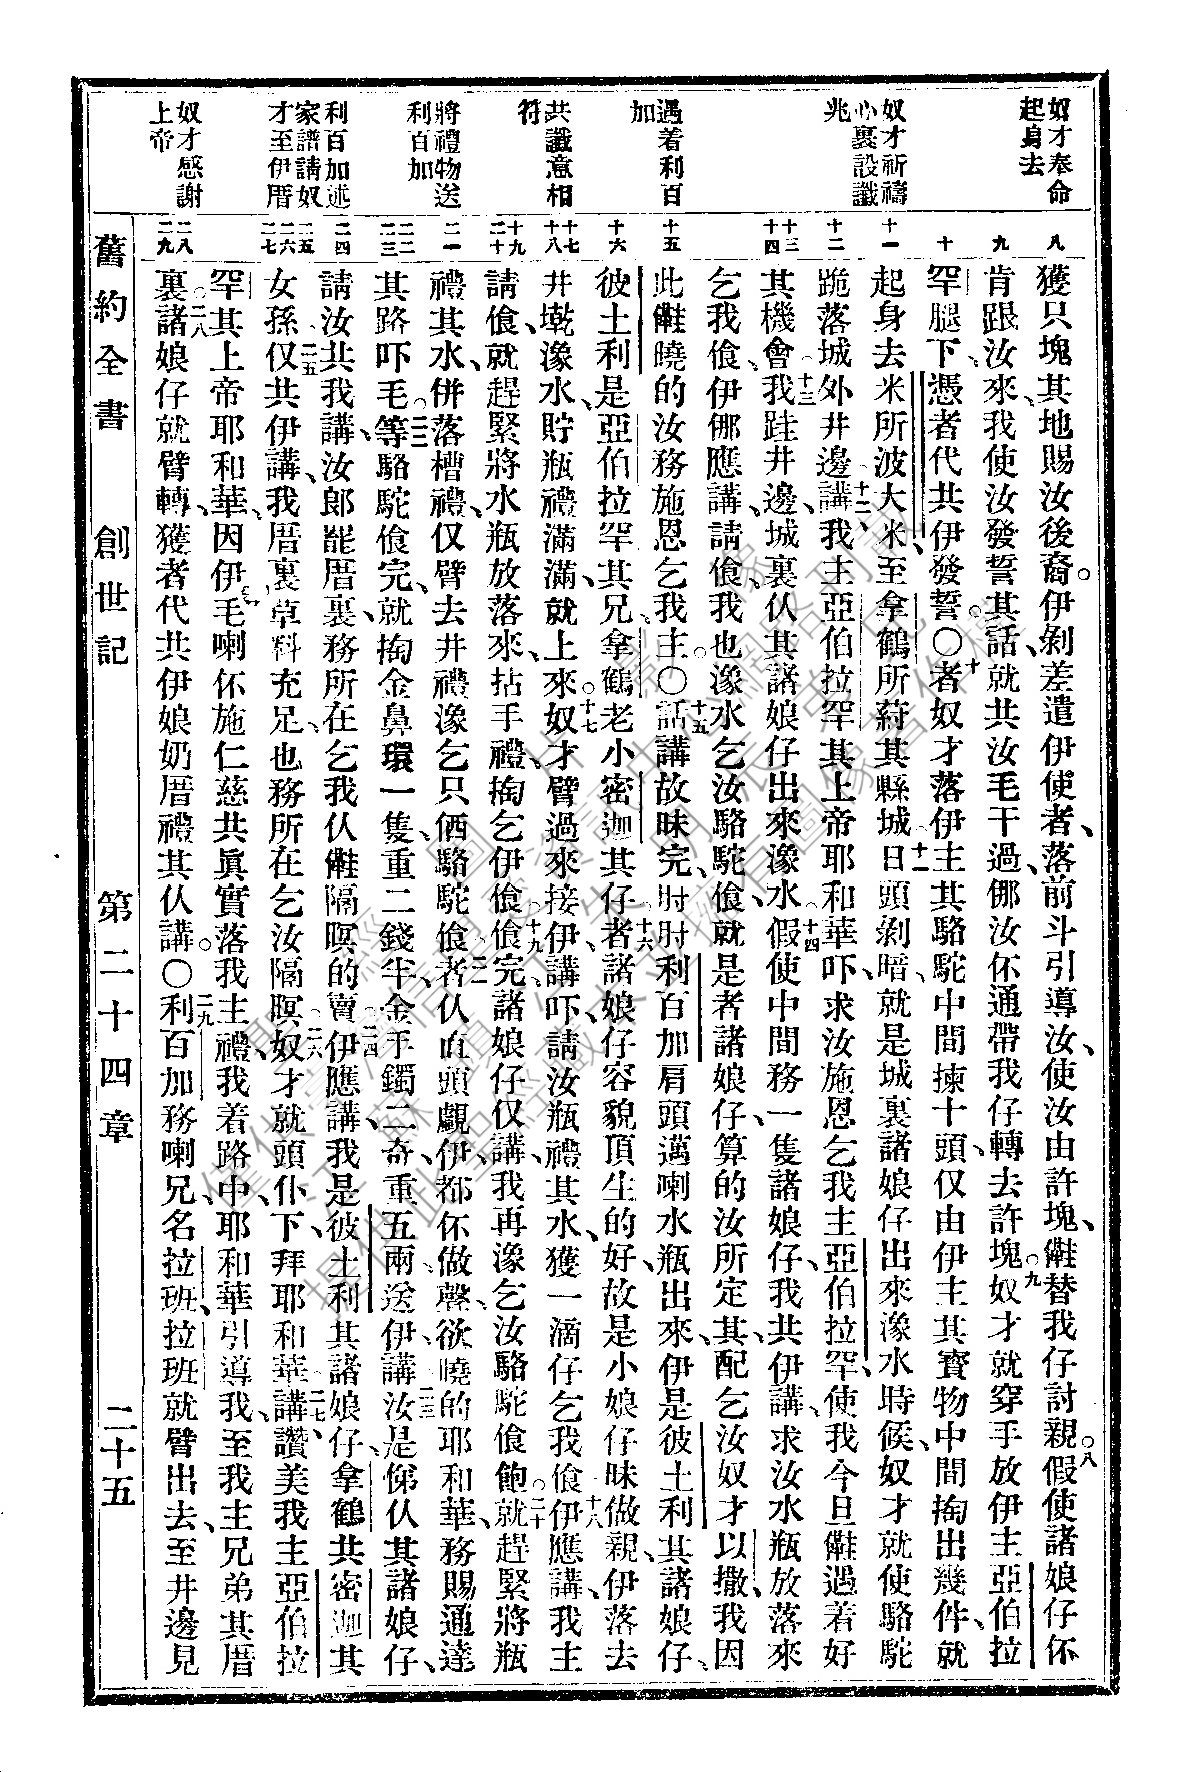 奴才奉命
起身去
奴才祈禱
心裏設讖
兆
遇着利百
加
共讖意相
符
將禮物送
利百加
利百加述
家譜請奴
才至伊厝
奴才感謝
上帝
八
九
十
十一
十二
十三
十四
十五
十六
十七
十八
十九
二十
二一
二二
二三
二四
二五
二六
二七
二八
二九
獲只塊其地賜汝後裔。伊剝差遣伊使者、落前斗引導汝、使汝由許塊、㒽替我仔討親。八假使諸娘仔伓
肯跟汝來、我使汝發誓其話、就共汝毛干過、㑚汝伓通帶我仔轉去許塊。九奴才就穿手放伊主亞伯拉
罕腿下、憑者代共伊發誓。〇十者奴才落伊主其駱駝中間揀十頭、仅由伊主其寳物中間掏出幾件、就
起身去米所波大米、至拿鶴所蒞其縣城。十一日頭剝暗、就是城裏諸娘仔出來㵄水時候、奴才就使駱駝
跪落城外井邊、十二講、我主亞伯拉罕其上帝耶和華吓、求汝施恩乞我主亞伯拉罕、使我今旦㒽遇着好
其機會。十三我跬井邊、城裏仈其諸娘仔出來㵄水。十四假使中間務一隻諸娘仔、我共伊講、求汝水瓶放落來
乞我食、伊㑚應講、請食、我也㵄水乞汝駱駝食、就是者諸娘仔、算的汝所定其、配乞汝奴才以撒、我因
此㒽曉的汝務施恩乞我主。〇十五話講故昧完、肘肘利百加肩頭邁喇水瓶出來、伊是彼土利其諸娘仔、
彼土利是亞伯拉罕其兄拿鶴老小密迦其仔。十六者諸娘仔容貌頂生的好、故是小娘仔昧做親、伊落去
井墘㵄水、貯瓶禮滿滿、就上來。十七奴才臂過來接伊、講吓、請汝瓶禮其水、獲一滴仔乞我食。十八伊應講、我主
請食、就趕緊將水瓶放落來、拈手禮、掏乞伊食。十九食完、諸娘仔仅講、我再㵄乞汝駱駝食飽。二十就趕緊將瓶
禮其水、併落槽禮、仅臂去井禮㵄乞只㑚駱駝食。二一者仈直頭覷伊、都伓做聲、欲曉的耶和華、務賜通達
其路吓毛。二二等駱駝食完、就掏金鼻環一隻重二錢半、金手鐲二奇重五兩送伊、二三講、汝是㑚仈其諸娘仔、
請汝共我講、汝郎罷厝裏、務所在乞我仈㒽隔暝的賣。二四伊應講、我是彼土利其諸娘仔、拿鶴共密迦其
女孫。二五仅共伊講、我厝裏草料充足、也務所在乞汝隔暝。二六奴才就頭仆下、拜耶和華、二七講、讚美我主亞伯拉
罕其上帝耶和華、因伊毛喇伓施仁慈共眞實落我主禮、我着路中、耶和華引導我、至我主兄弟其厝
裏。二八諸娘仔就臂轉、獲者代共伊娘奶厝禮其仈講。〇二九利百加務喇兄、名拉班、拉班就臂出去、至井邊見
舊約全書　創世記　第二十四章　二十五